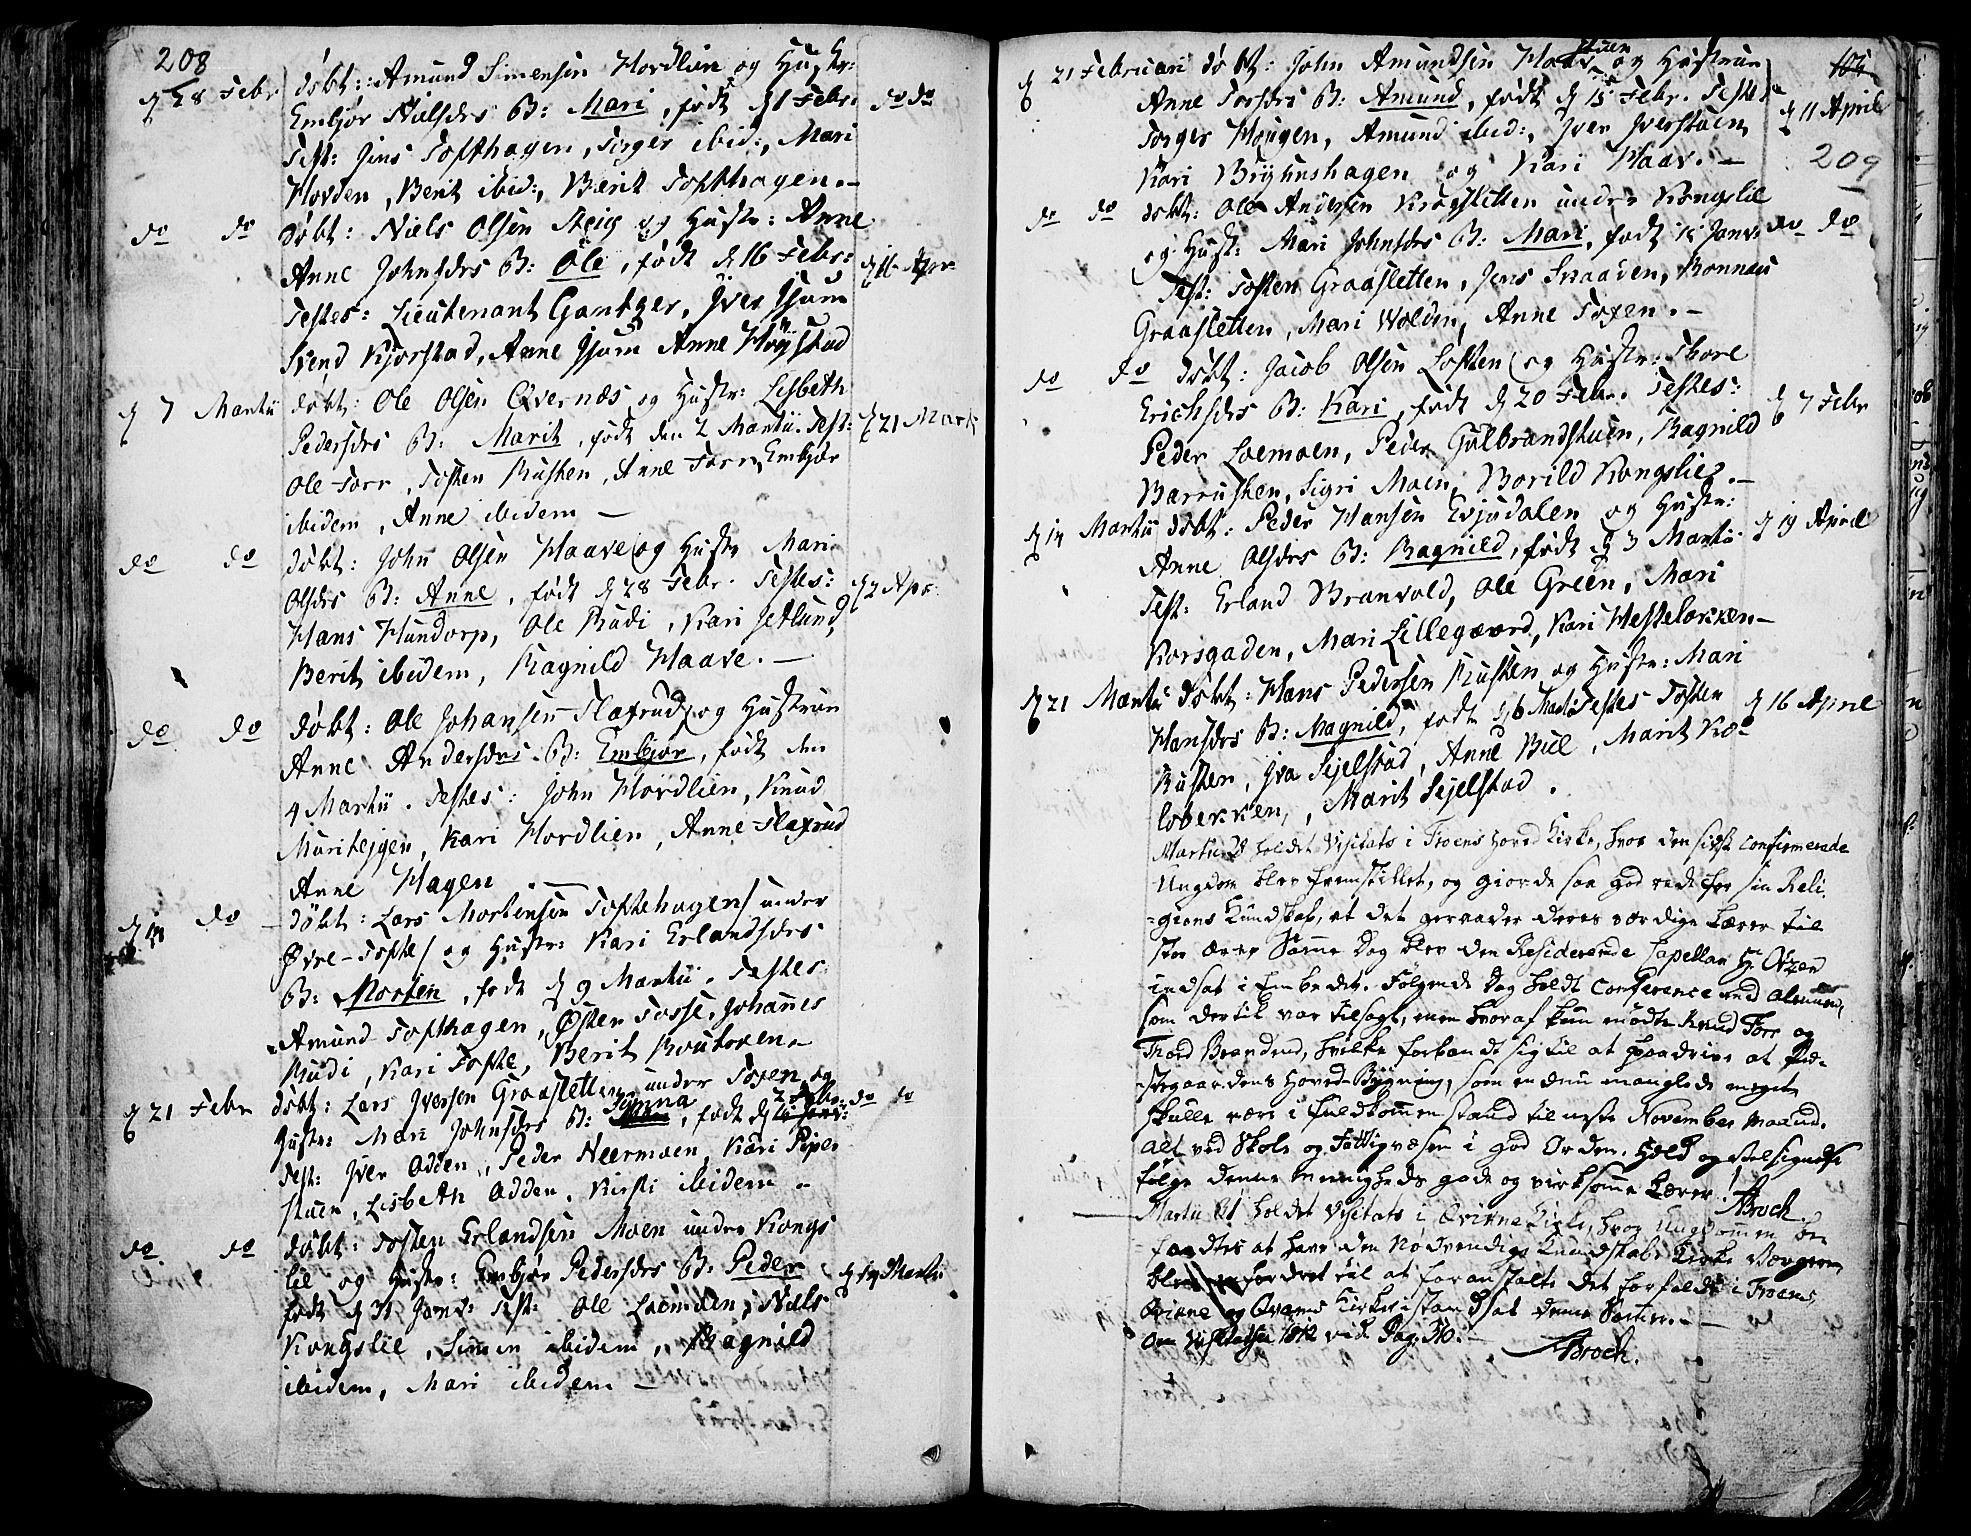 208
d 28 Febr døbt: Amund Simensen Hordlien og Hustr:
Embjør Nielsdrs B: Mari, født d 1 Febr. do do
Test: Jens Tofthagen, Torger ibid:, Mari
Horden, Berit ibid:, Berit Tofthagen. –
do do døbt: Niels Olsen Steig og Hustr: Anne
Anne Johnsdrs B: Ole, født d 16 Febr: d 16 Apr
Testes: Lieutenant Gantzer, Iver Isum
Svend Kjorstad, Anne Isum Anne Høystad
d 7 Martii døbt: Ole Olsen Qvernæs og Hustr: Lisbeth
Pedersdrs B: Marit, født den 2 Martii. Test: d 21 Mart
Ole Forr, Tosten Rusten, Anne Forr, Embjør
ibidem, Anne ibidem –
do do døbt: John Olsen Haave og Hustr Mari
Olsdrs B: Anne, født d 28 Febr. Testes: d 2 Apr:
Hans Hundorp, Ole Rudi, Kari Setlund,
Berit ibidem, Ragnild Haave. –
do do døbt: Ole Johansen Flaxrud og Hustrue
Anne Andersdrs B: Embjør, født den
4 Martii. Testes: John Hordlien, Knud
Muritejgen, Kari Hordlien, Anne Flaxrud
Anne Hagen –
d 14 do døbt: Lars Mortensen Toftehagen / under
Øvre-Tofte / og Hustr: Kari Erlandsdrs
B: Morten, født d 9 Martii. Testes
Amund Tofthagen, Østen Fosse, Johannes
Rudi, Kari Tofte, Berit
d 21 Febr døbt: Lars Iversen Graasletten under Toxen og
Hustr: Mari Johnsdrs B: født d do do
Test: Iver Odden, Peder Neermoen, Kari Piper
stuen, Lisbeth Odden, Kirsti ibidem.
do do døbt: Tosten Erlandsen Moen under Kongs
lie og Hustr: Embjør Pedersdrs B: Peder
født d 31 Janr: Test: Ole Loemoen, Niels d 14 Martii
Kongslie, Simen ibidem, Ragnild
ibidem, Mari ibidem –
d 21 Februari døbt: John Amundsen Haavstuen og Hustrue
Anne Torsdrs B: Amund, født d 15 Febr. Testes d 11 April
Torger Hougen, Amund ibid:, Iver Iverstuen, 209
Kari Bryhnshagen og Kari Haav. –
do do døbt: Ole Andersen Krogsletten under Kongslie
og Hustr: Mari Johnsdrs B: Mari, født 15 Janr. do do
Test: Tosten Graasletten, Jens Snaaden, Ronnau
Graasletten, Mari Wolden, Anne Toxen. –
do do døbt: Jacob Olsen Loften og Hustr: Thore
Erichsdrs B: Kari, født d 20 Febr. Testes: d 7 Febr
Peder Loemoen, Peder Gulbrandstuen, Ragnild
Barrusten, Sigri Moen, Borild Kongslie. –
d 14 Martii døbt: Peder Hansen Kvjudalen og Hustr:
Anne Olsdrs B: Ragnild, født d 3 Martii d 19 April
Test: Erland Branvold, Ole Green, Mari
Korsgaden, Mari Lillegaard, Kari Hesteløkken –
d 21 Martii døbt: Hans Pedersen Rusten og Hustr: Mari
Hansdrs B: Magnild, født d 6 Martii Testes Tosten d 16 April
Rusten, Iva Sejelstad, Anne Bue, Marit Kø-
Marit Sejelstad.
Martii holdet Visitats i Froens Hoved Kirke, hvor den sidst confirmerede
Ungdom blev fremstillet, og giorde saa god rede for sin Reli-
gions Kundskab, at det geraader deres værdige Lærer til
stor ære. Samme Dag blev den Residerende Capellan Hr
indsat i Embedet. Følgende Dag holdt Conference med
som dertil var tilsagt, men hvoraf kun mødte Knud Forr og
Thord Brandrud, hvilke forbandt sig til at paadrive at Præ-
stegaardens Hoved-Bygning, som endnu manglede meget
skulle være i fuldkommen stand til neste November Maaned.
Alt ved Skole og Fattigvæsen i god Orden. Held og Velsignelse
følge denne Menigheds gode og virksomme Lærer!
ABroch.
Martii 21 holdet Visitats i Qvikne Kirke, hvor Ungdommen be-
fandtes at have den nødvendige Kundskab. Kirke Værgeren
blev fordret til at foranstalte det forfaldt i Froens,
Qvikne og Qvams Kirker istandsat denne Sommer. –
Om Visitatsen 1812 vid. Pag.
ABroch.